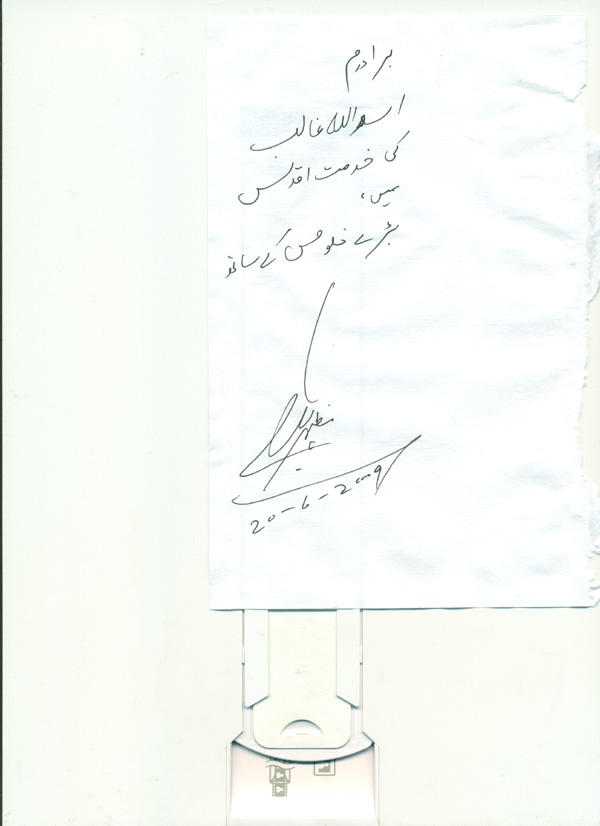 برادرم
اسد اللہ غالب
کی خدمت اقدس
میں،
بڑے خلوص کے ساتھ
20-6-2009